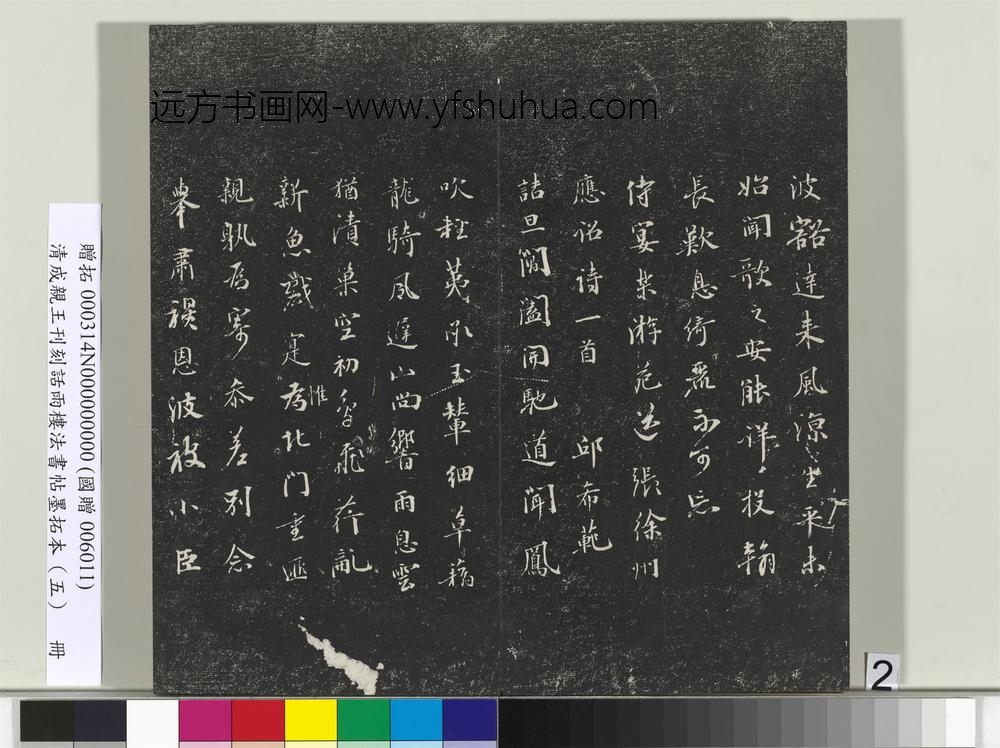 波豁達来風涼坐采未
始聞歌之安能詳、投翰
長歎息綺麗不可忘
侍宴樂游苑送張徐州
應詔詩一首 邱希範
詰旦閶闔開馳道聞鳳
吹輕荑承玉輦細草藉
龍騎風遲山尚響雨息雲
猶漬巢空初鳥飛荇亂
新魚戲寔為惟北門重匪
親孰為寄參差別念
舉肅穆恩波被小臣
贈拓 000314N000000000(國贈 006011)
清成親王刊刻話雨樓法書帖墨拓本（五） 冊
远方书画网-www.yfshuhua.com
2